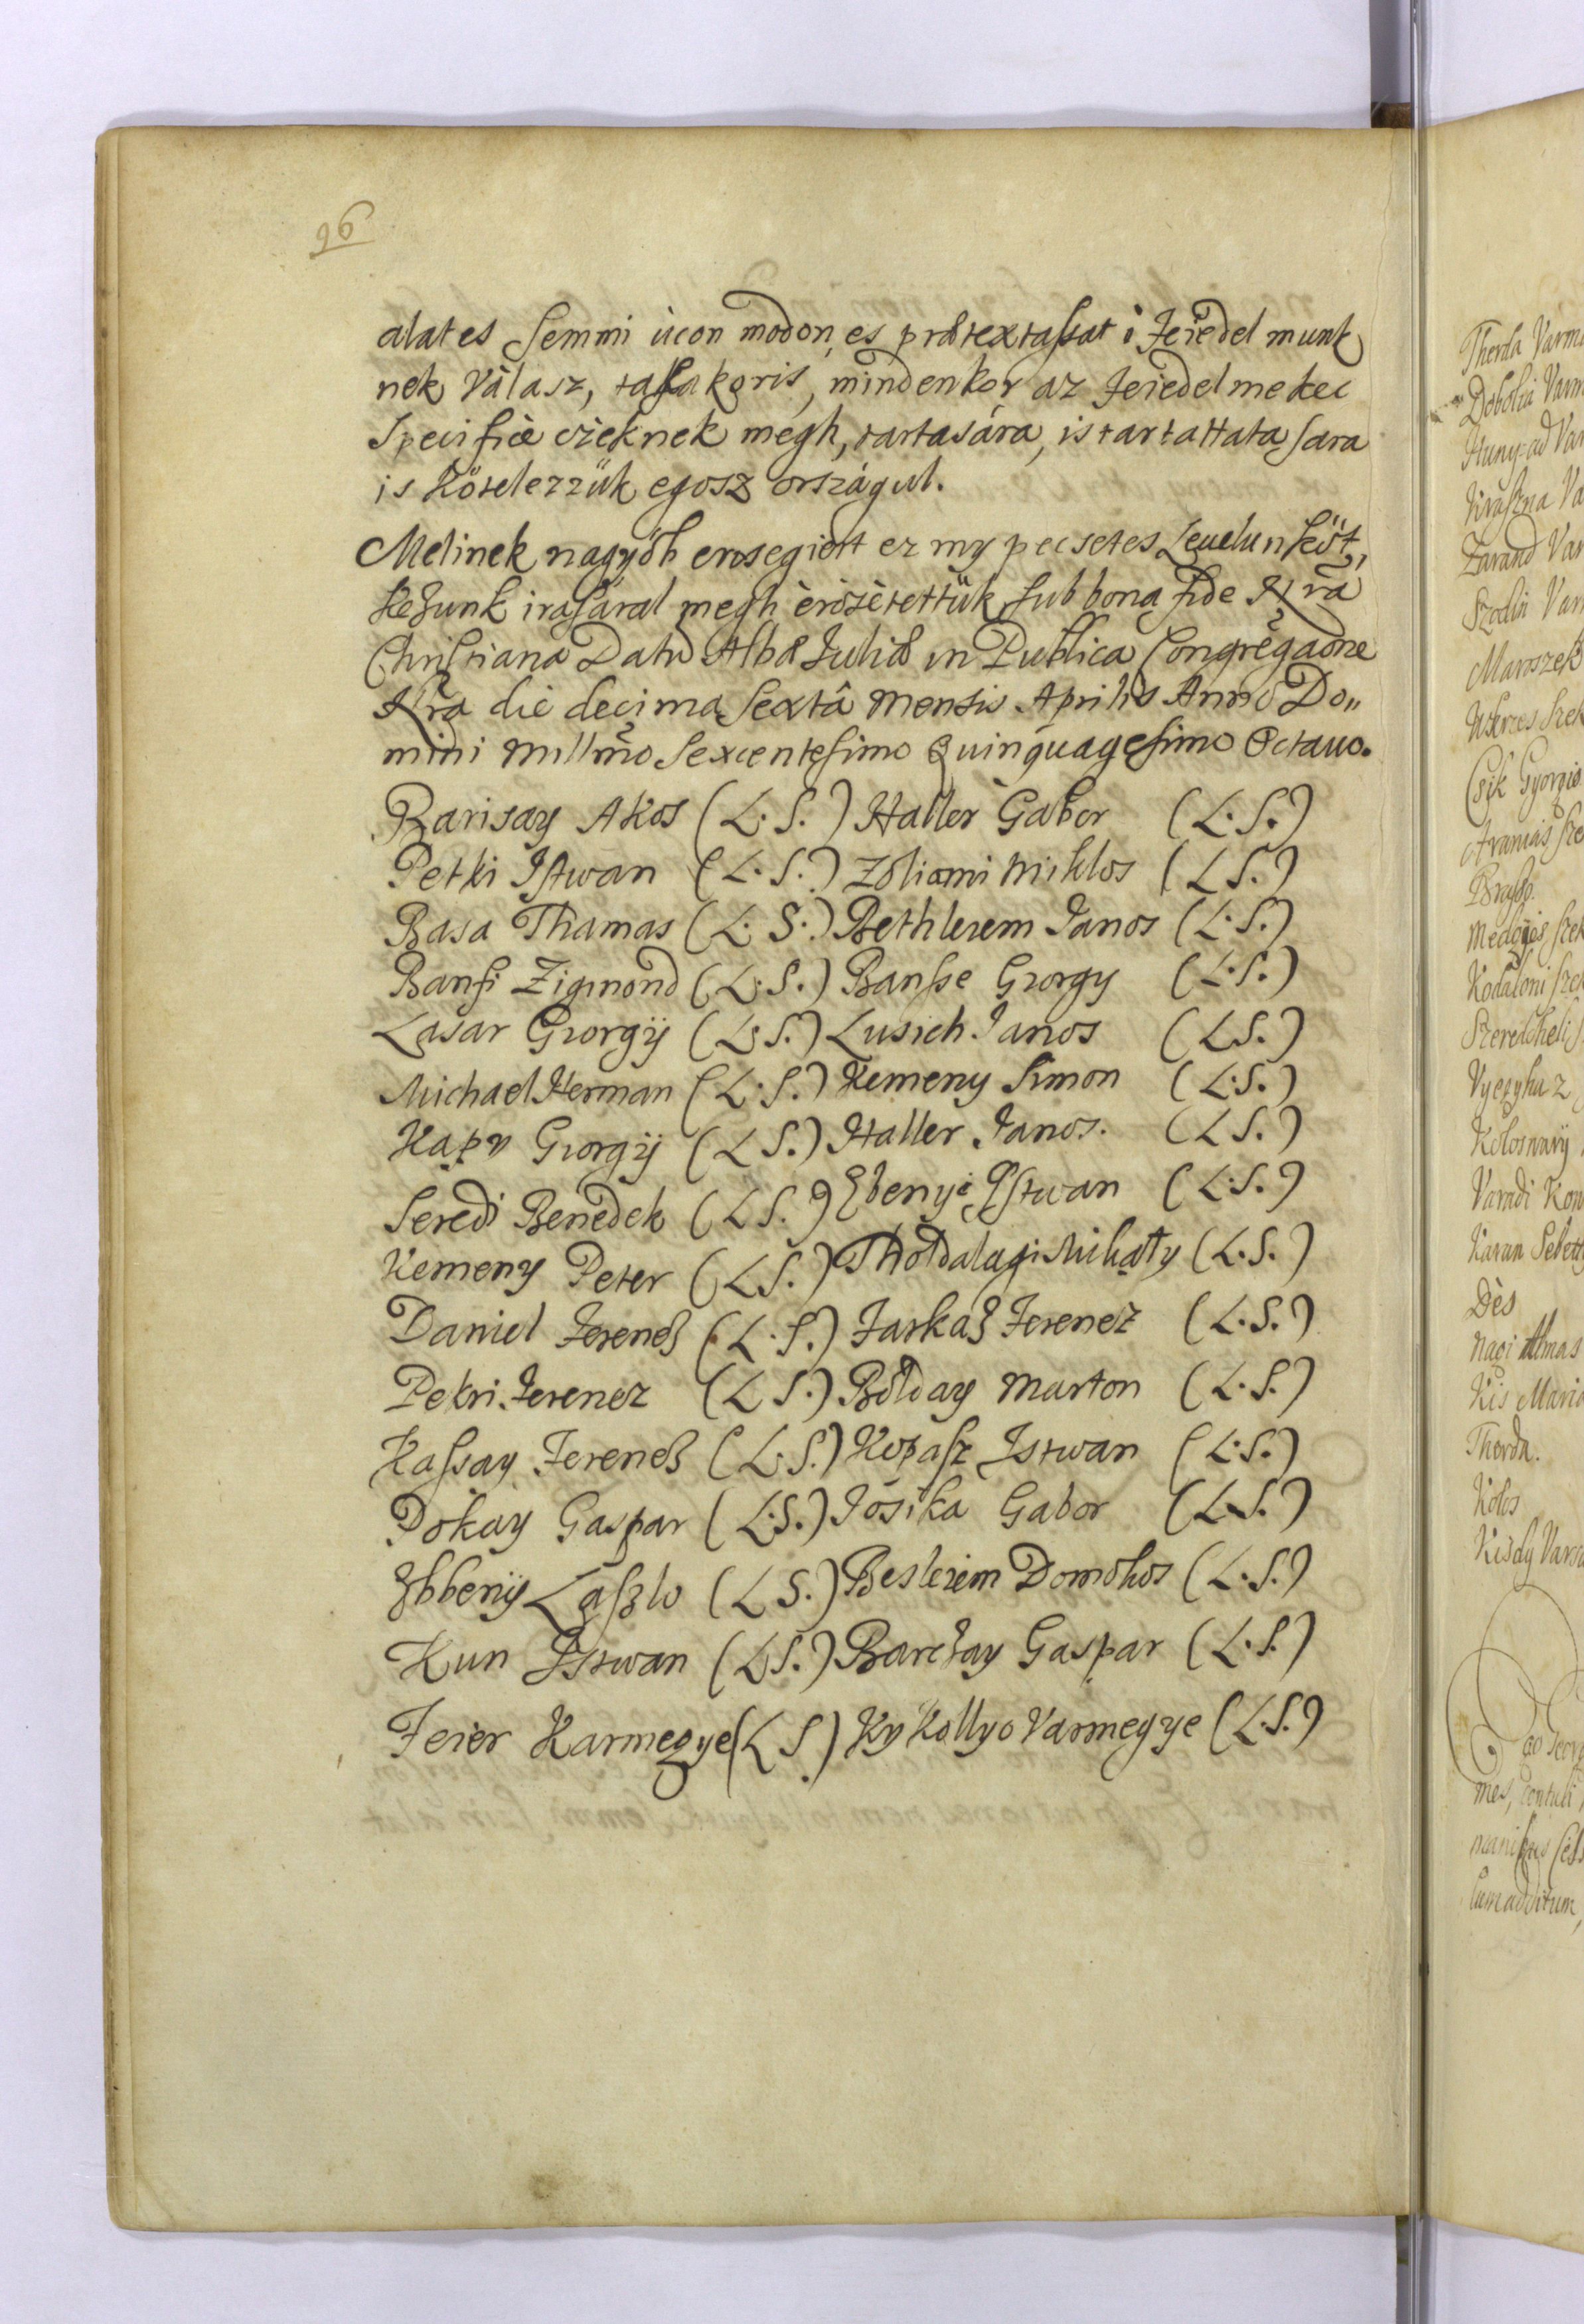 96
alat es semmi ücon modon, es prætextaſsat i Feiedel munk
nek Válasz, taſsakoris, mindenkor az Feiedelme kec
Specificè cieknek megh, tartasára, is tartattata sara
is Kötelezzük egosz országul.
Melinek nagyöb erosegiert ez my pecsetes Leuelunkeöt,
Kezunk iraſaral megh èrösètettük, sub bona fide Nrã
Christiana Datũ Albæ Juliæ in Publica Congregãone
Nrã die decima Sextâ Mensis Aprilis Anno Do„
mini Millmõ Sexcentesimo Quinquagesimo Octauo.
Barisay Akos (L. S.) Haller Gabor (L. S.)
Petki Istwan (L. S.) Zoliomi Miklos (L S.)
Basa Thamas (L. S.) Bethlerem Janos (L. S.)
Banfi Zigmond (L. S.) Banſse Giorgy (L. S.)
Lasar Giorgÿ (L. S.) Lusich Janos (L S.)
Michael Herman (L. S.) Kemeny Simon (L. S.)
Kapy Giorgÿ (L S.) Haller Janos. (L S.)
Seredi Benedek (L S.) Ebenyi Istwan (L. S.)
Kemeny Peter (L S.) Tholdalagi Mihaly (L. S.)
Daniel Ferencz (L. S.) Farkas Ferencz (L. S.)
Pekri Ferencz (L S.) Bolday Marton (L. S.)
Kaſsay Ferencz (L. S.) Kopasz Istwan (L. S.)
Pokay Gaspar (L. S.) Jósika Gabor (L. S.)
Ebbenÿ Laszlo (L S.) Beslerem Domokos (L. S.)
Kun Istwan (L S.) Barczay Gaspar (L. S.)
Feier Varmegye (L S) Ky Kollyo Varmegye (L. S.)
Therda
Dobolia
Huny-ad
Kraszna
Zarand
Maroszek
Csik Gyorgio
Kodaloni
Vyegyhaz
Varadi
Karan
Dès
Nagi Almas
Kis
Thorda.
Kolos